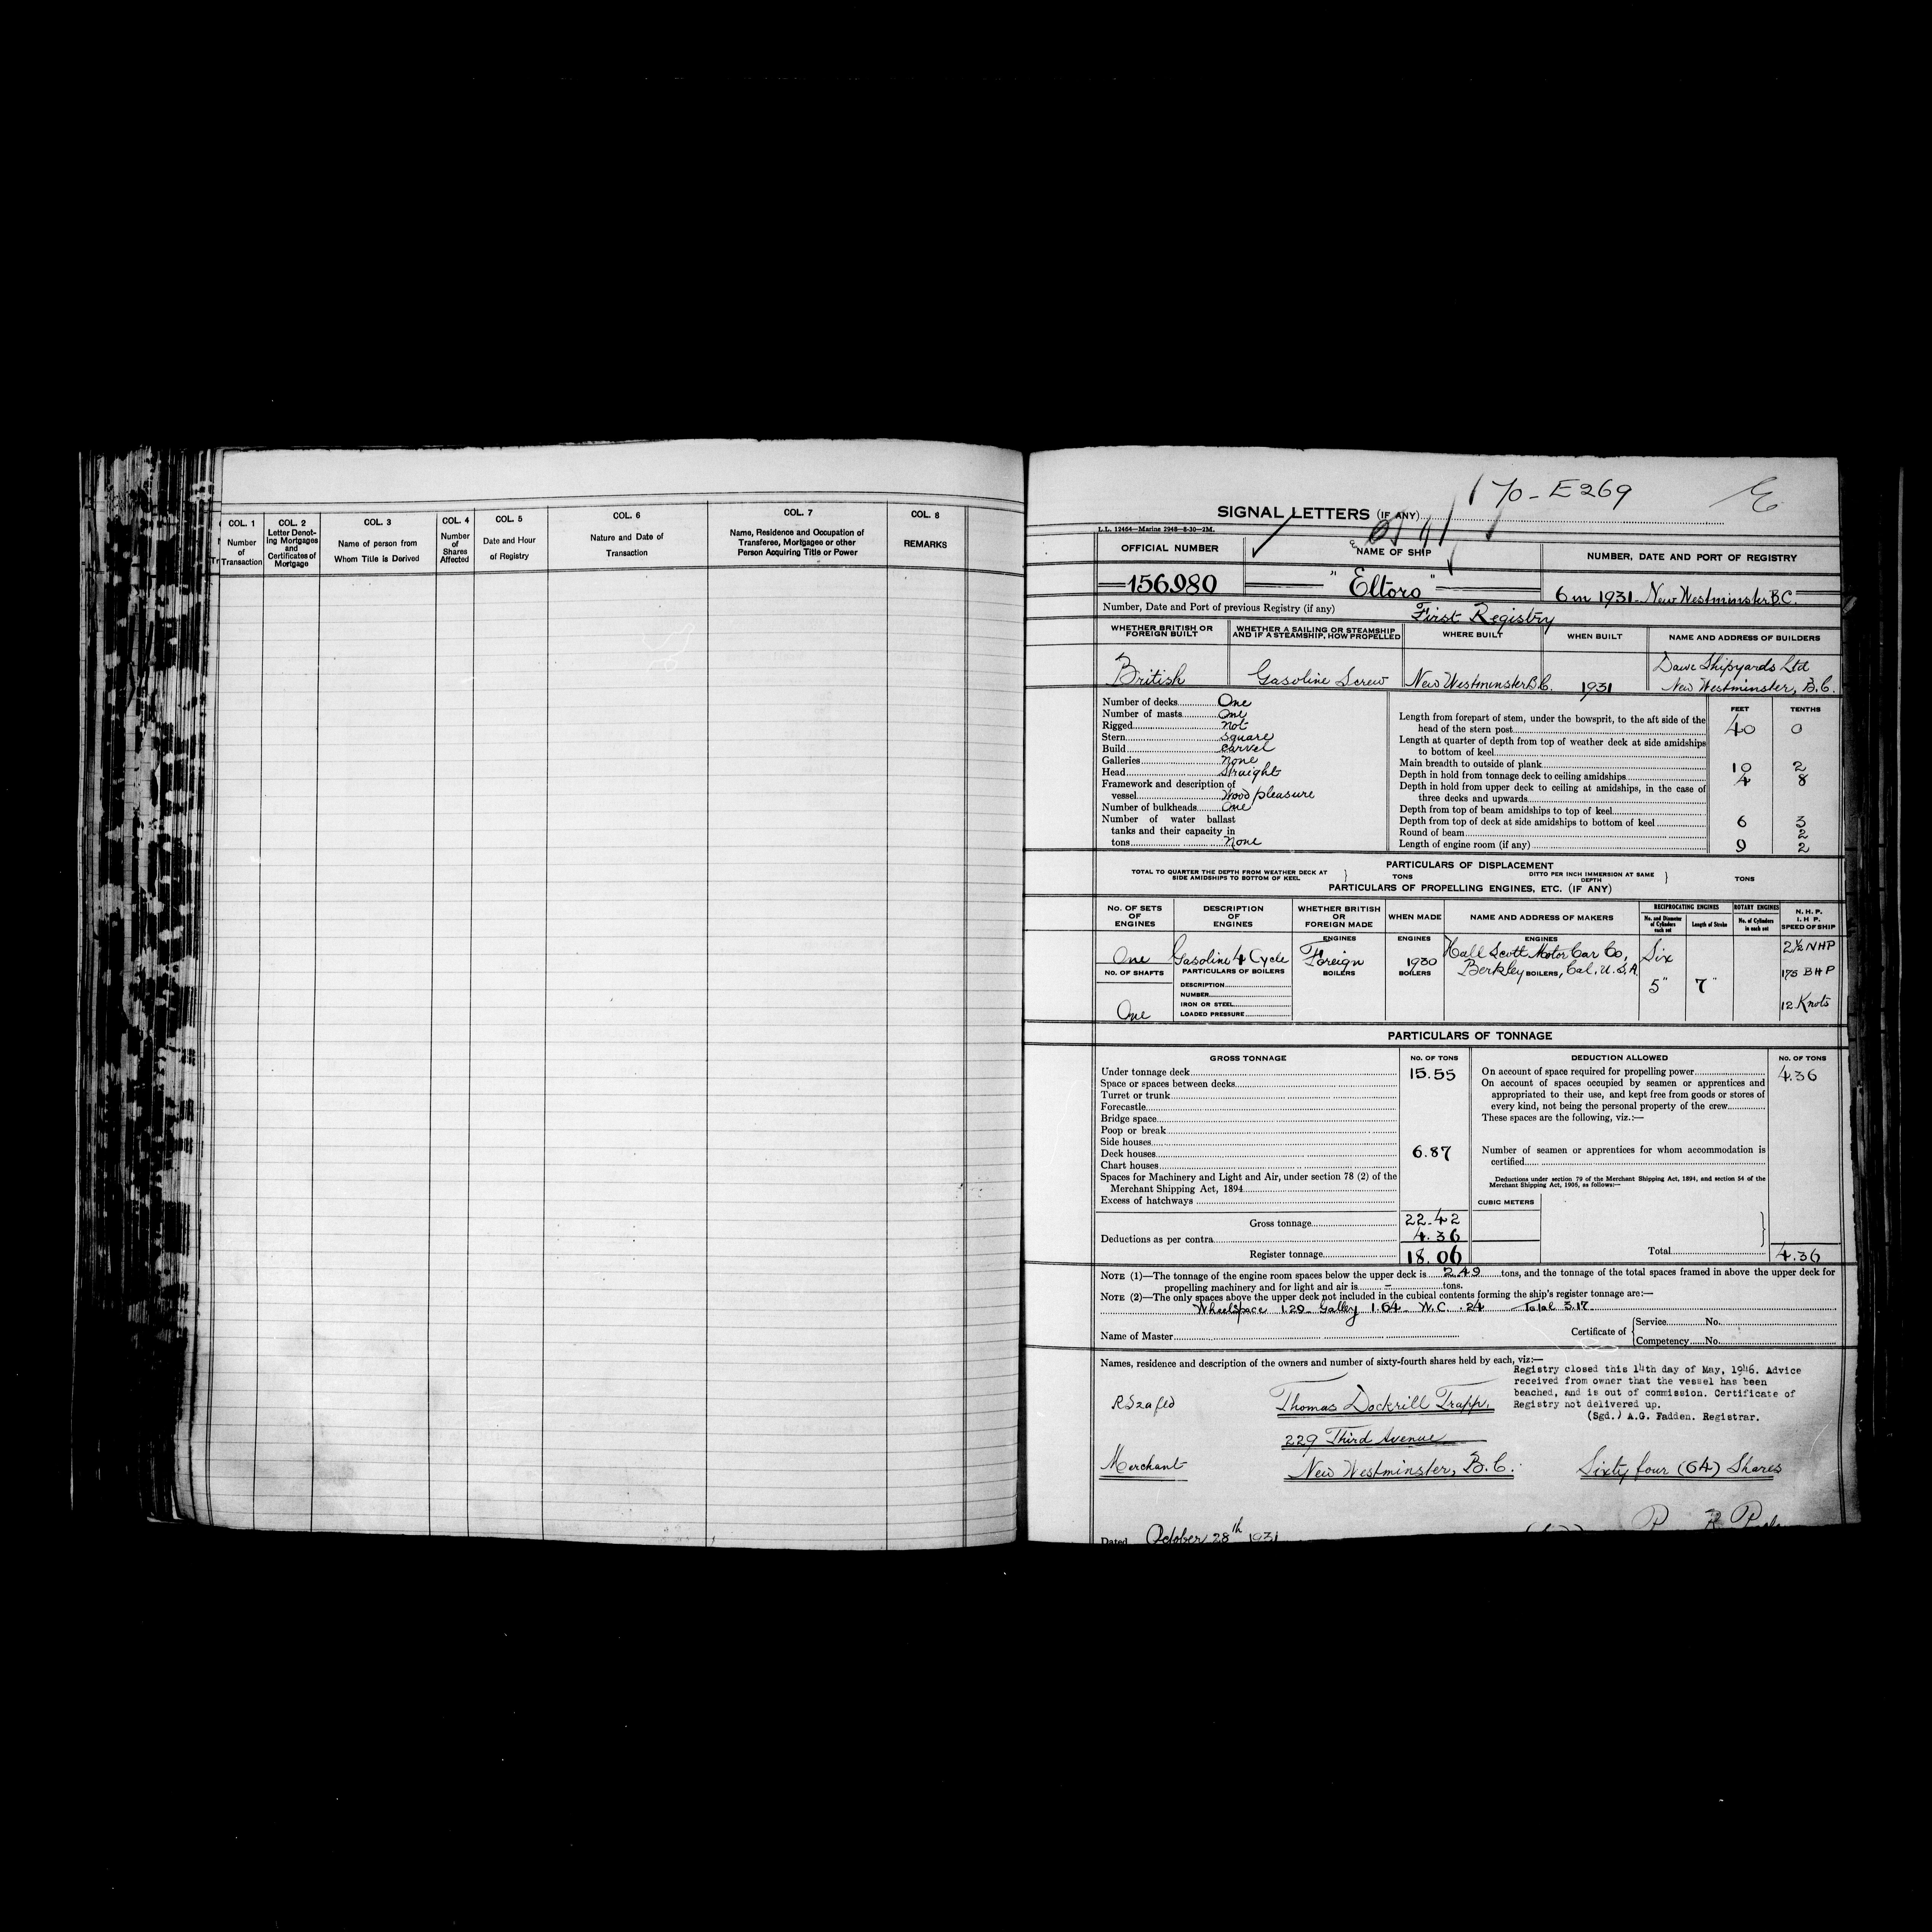 COL. 1
Number
of
Transaction
COL. 2
Letter Denot-
ing Mortgages
and
Certificates of
Mortgage
COL. 3
Name of person from
Whom Title is Derived
COL. 4
Number
of
Shares
Affected
COL. 5
Date and Hour
of Registry
COL. 6
Nature and Date of
Transaction
COL. 7
Name, Residence and Occupation of
Transferee, Mortgagee or other
Person Acquiring Title or Power
COL. 8
REMARKS
170-E269
SIGNAL LETTERS (IF ANY)
L.L. 12464—Marine 2948—8-30—2M.
OFFICIAL NUMBER
NAME OF SHIP
NUMBER, DATE AND PORT OF REGISTRY
156980
"Eltoro"
6 in 1931 New Westminster B.C.
Number, Date and Port of previous Registry (if any) First Registry
WHETHER BRITISH OR
FOREIGN BUILT
WHETHER A SAILING OR STEAMSHIP
AND IF A STEAMSHIP, HOW PROPELLED
WHERE BUILT
WHEN BUILT
NAME AND ADDRESS OF BUILDERS
British
Gasoline Screw
New Westminster B.C.
1931
Dawe Shipyards Ltd
New Westminster, B.C.
Number of decks One
Number of masts One
Rigged Not
Stern Square
Build Carvel
Galleries None
Head Straight
Framework and description of
vessel Wood pleasure
Number of bulkheads One
Number of water ballast
tanks and their capacity in
tons None
FEET TENTHS
Length from forepart of stem, under the bowsprit, to the aft side of the
head of the stern post 40 0
Length at quarter of depth from top of weather deck at side amidships
to bottom of keel
Main breadth to outside of plank 10 2
Depth in hold from tonnage deck to ceiling amidships 4 8
Depth in hold from upper deck to ceiling at amidships, in the case of
three decks and upwards
Depth from top of beam amidships to top of keel
Depth from top of deck at side amidships to bottom of keel 6 3
Round of beam 2
Length of engine room (if any) 9 2
PARTICULARS OF DISPLACEMENT
TOTAL TO QUARTER THE DEPTH FROM WEATHER DECK AT
SIDE AMIDSHIPS TO BOTTOM OF KEEL
TONS
DITTO PER INCH IMMERSION AT SAME
DEPTH
TONS
PARTICULARS OF PROPELLING ENGINES, ETC. (IF ANY)
No. OF SETS
OF
ENGINES
DESCRIPTION
OF
ENGINES
WHETHER BRITISH
OR
FOREIGN MADE
WHEN MADE
NAME AND ADDRESS OF MAKERS
RECIPROCATING ENGINES
No. and Diameter
of Cylinders
each set
Length of Stroke
ROTARY ENGINES
No. of Cylinders
in each set
N. H. P.
I. H. P.
SPEED OF SHIP
ENGINES
ENGINES
ENGINES
One
Gasoline 4 Cycle
Foreign
1930
Hall Scott Motor Car Co,
Berkley, Cal, U.S.A
Six
5"
7"
2½ NHP
175 BHP
12 Knots
NO. OF SHAFTS
PARTICULARS OF BOILERS
BOILERS
BOILERS
BOILERS
DESCRIPTION
NUMBER
IRON OR STEEL
LOADED PRESSURE
One
PARTICULARS OF TONNAGE
GROSS TONNAGE
NO. OF TONS
Under tonnage deck 15.55
Space or spaces between decks
Turret or trunk
Forecastle
Bridge space
Poop or break
Side houses
Deck houses 6.87
Chart houses
Spaces for Machinery and Light and Air, under section 78 (2) of the
Merchant Shipping Act, 1894
Excess of hatchways
Gross tonnage 22.42
Deductions as per contra 4.36
Register tonnage 18.06
DEDUCTION ALLOWED
NO. OF TONS
On account of space required for propelling power 4.36
On account of spaces occupied by seamen or apprentices and
appropriated to their use, and kept free from goods or stores of
every kind, not being the personal property of the crew
These spaces are the following, viz.:—
Number of seamen or apprentices for whom accommodation is
certified
Deductions under section 79 of the Merchant Shipping Act, 1894, and section 54 of the
Merchant Shipping Act, 1906, as follows:—
CUBIC METERS
Total 4.36
NOTE (1)—The tonnage of the engine room spaces below the upper deck is 2.49 tons, and the tonnage of the total spaces framed in above the upper deck for
propelling machinery and for light and air is – tons.
NOTE (2)—The only spaces above the upper deck not included in the cubical contents forming the ship's register tonnage are:—
Wheelspace 1.29 Galley 1.64 W.C. .24 Total 3.17
Name of Master
Certificate of
Service No.
Competency No.
Names, residence and description of the owners and number of sixty-fourth shares held by each, viz:—
Registry closed this 14th day of May, 1946. Advice
received from owner that the vessel has been
beached, and is out of commission. Certificate of
Registry not delivered up.
(Sgd.) A.G. Fadden. Registrar.
Thomas Dockrill Trapp.
229 Third Avenue
Merchant New Westminster, B.C. Sixty four (64) Shares
Dated October 28th 1931